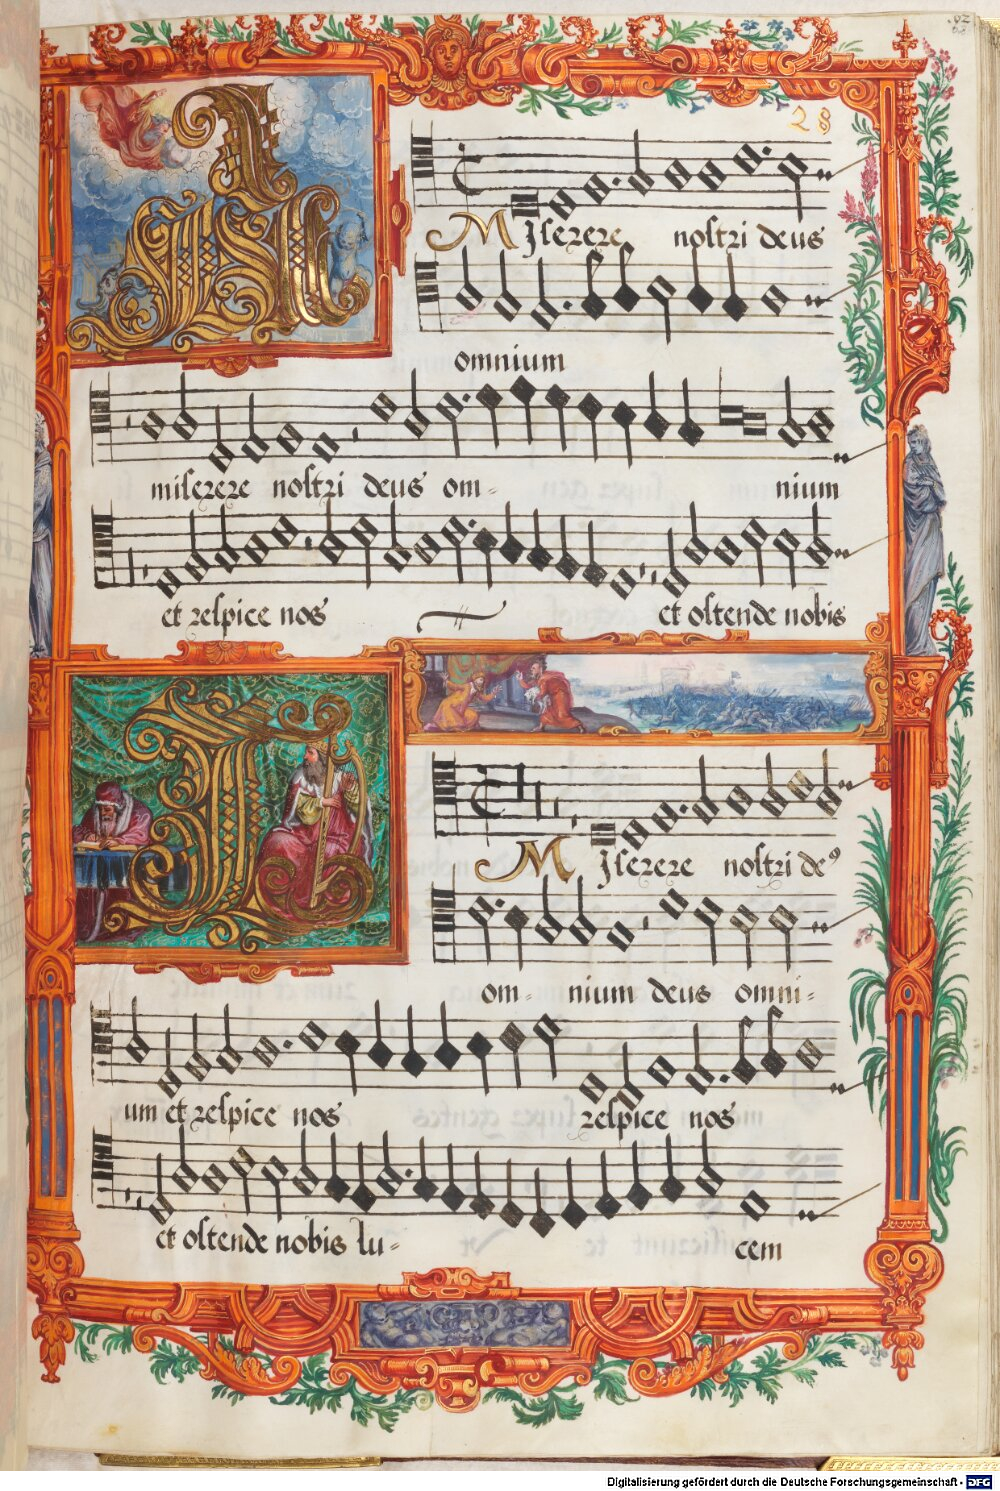 28
Miserere nostri deus
omnium
miserere nostri deus om-
nium
et respice nos et ostende nobis
Miserere nostri de⁹
om- nium deus omni-
um et respice nos respice nos
et ostende nobis lu- cem
Digitalisierung gefördert durch die Deutsche Forschungsgemeinschaft - DFG